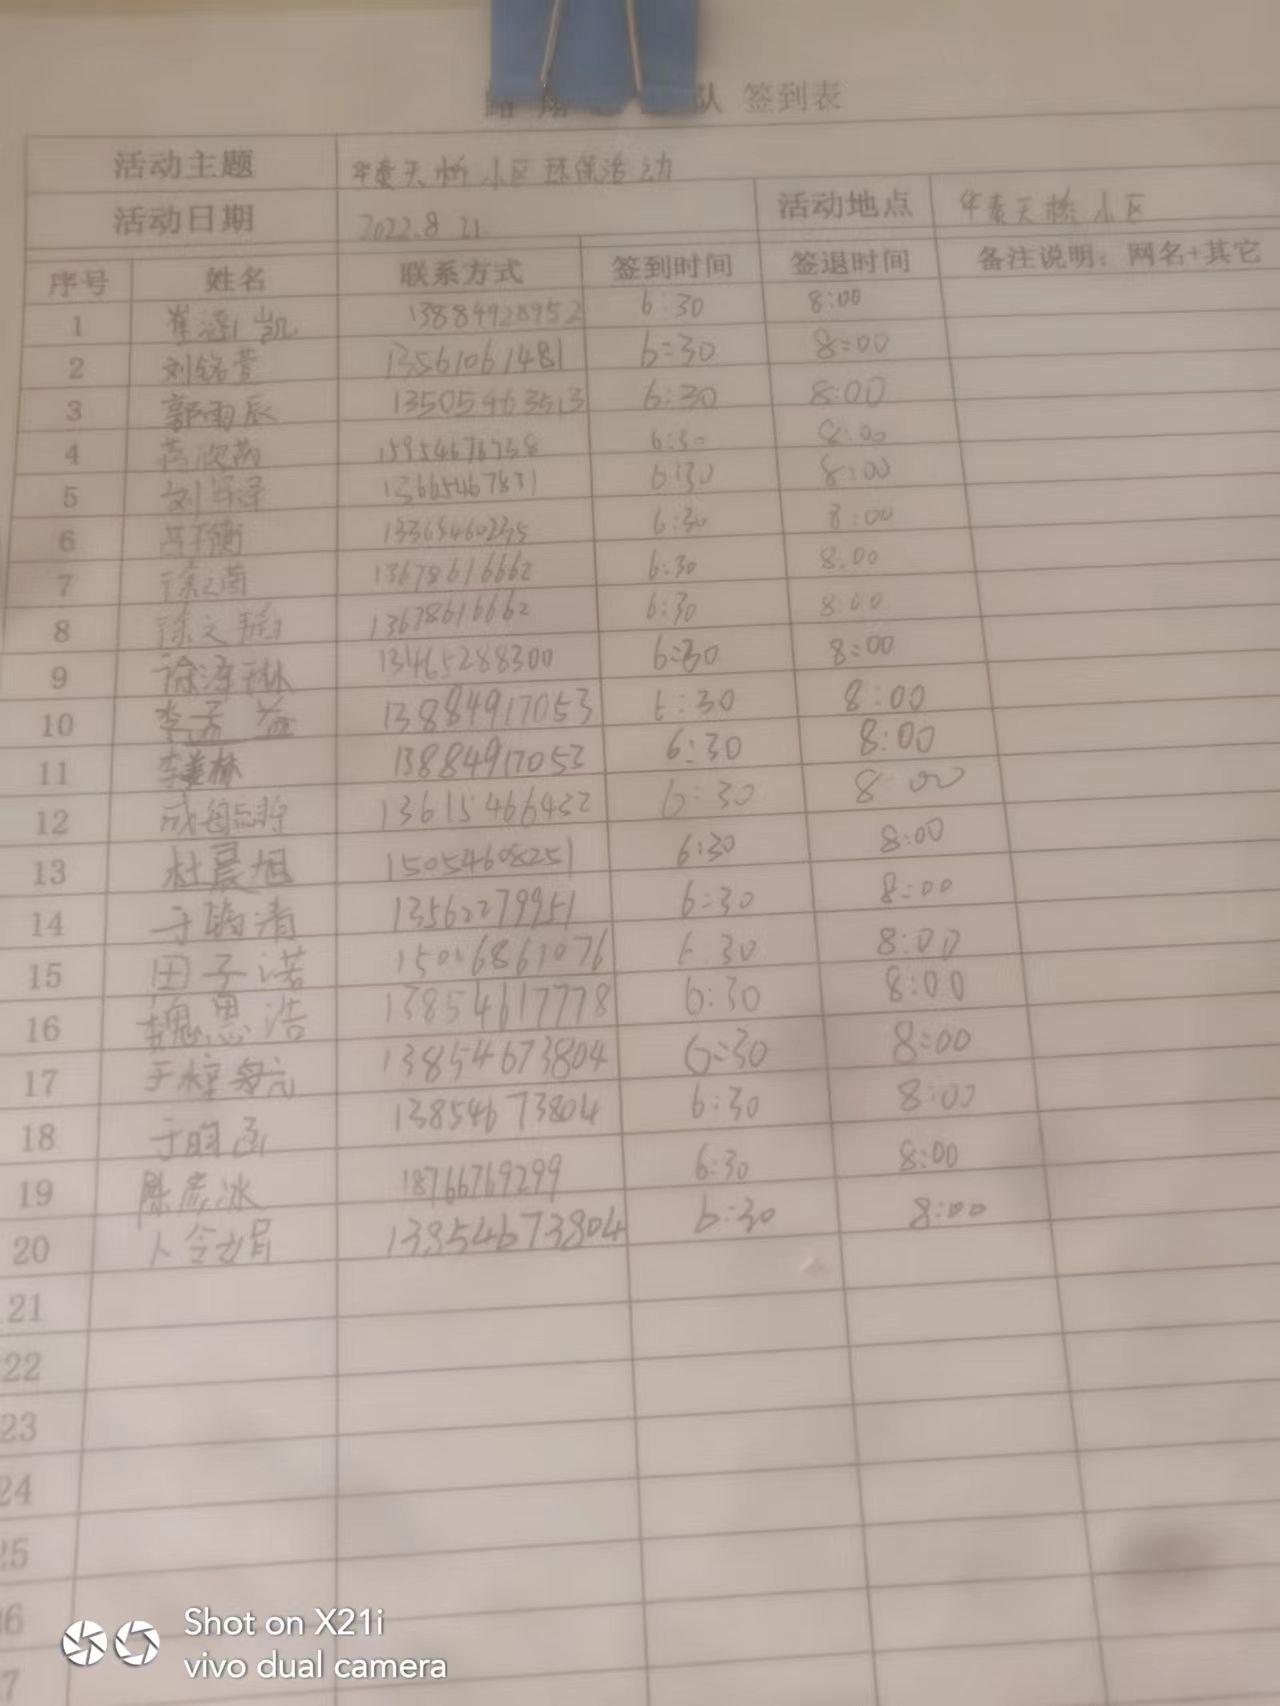 队 签到表
活动主题 华泰天桥小区环保活动
活动日期 2022.8.21 活动地点 华泰天桥小区
序号 姓名 联系方式 签到时间 签退时间 备注说明：网名+其它
1 凯 13884920952 6:30 8:00
2 刘铭萱 13561061481 6:30 8:00
3 郭雨辰 13505463513 6:30 8:00
4 15954676738 6:30 8:00
5 13665467831 6:30 8:00
6 13365460235 6:30 8:00
7 13678616662 6:30 8:00
8 徐文 13678616662 6:30 8:00
9 徐泽琳 13465288300 6:30 8:00
10 李孟益 13884917053 6:30 8:00
11 李美林 13884917053 6:30 8:00
12 13615466432 6:30 8:00
13 杜晨旭 15054608251 6:30 8:00
14 于 清 13562279951 6:30 8:00
15 田子诺 6:30 8:00
16 魏思浩 13854617778 6:30 8:00
17 13854673804 6:30 8:00
18 于昀函 13854673804 6:30 8:00
19 陈彦冰 18766769299 6:30 8:00
20 13854673804 6:30 8:00
21
22
23
24
25
Shot on X21i
vivo dual camera